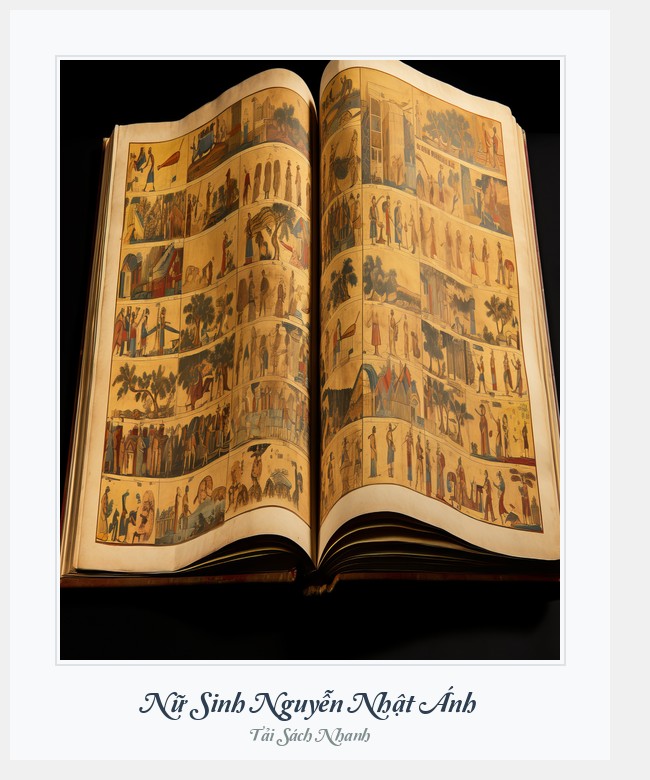 Nữ Sinh Nguyễn Nhật Ánh
Tải Sách Nhanh